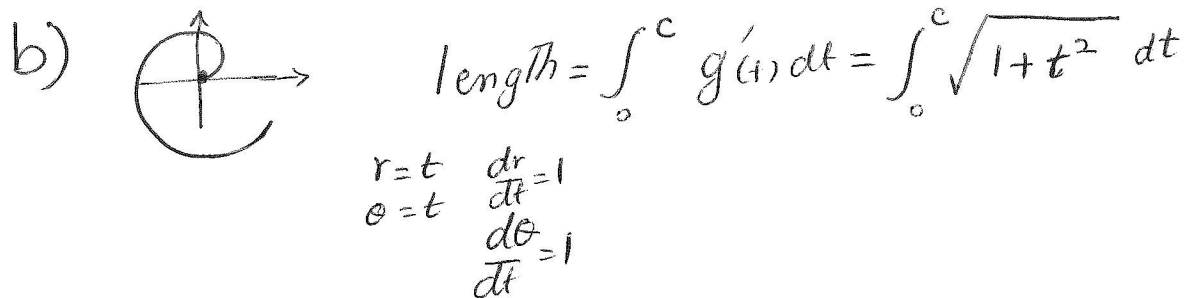 b) length = ∫₀ᶜ g'(t) dt = ∫₀ᶜ √(1+t²) dt
r = t dr/dt = 1
θ = t
dθ/dt = 1